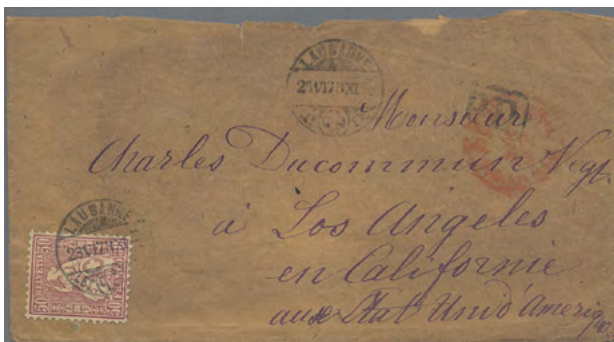 LAUSANNE
P.D.
Monsieur
Charles Ducommun Negt.
à Los Angeles
en Californie
aux Etat Unid'Amériq
LAUSANNE
50
50